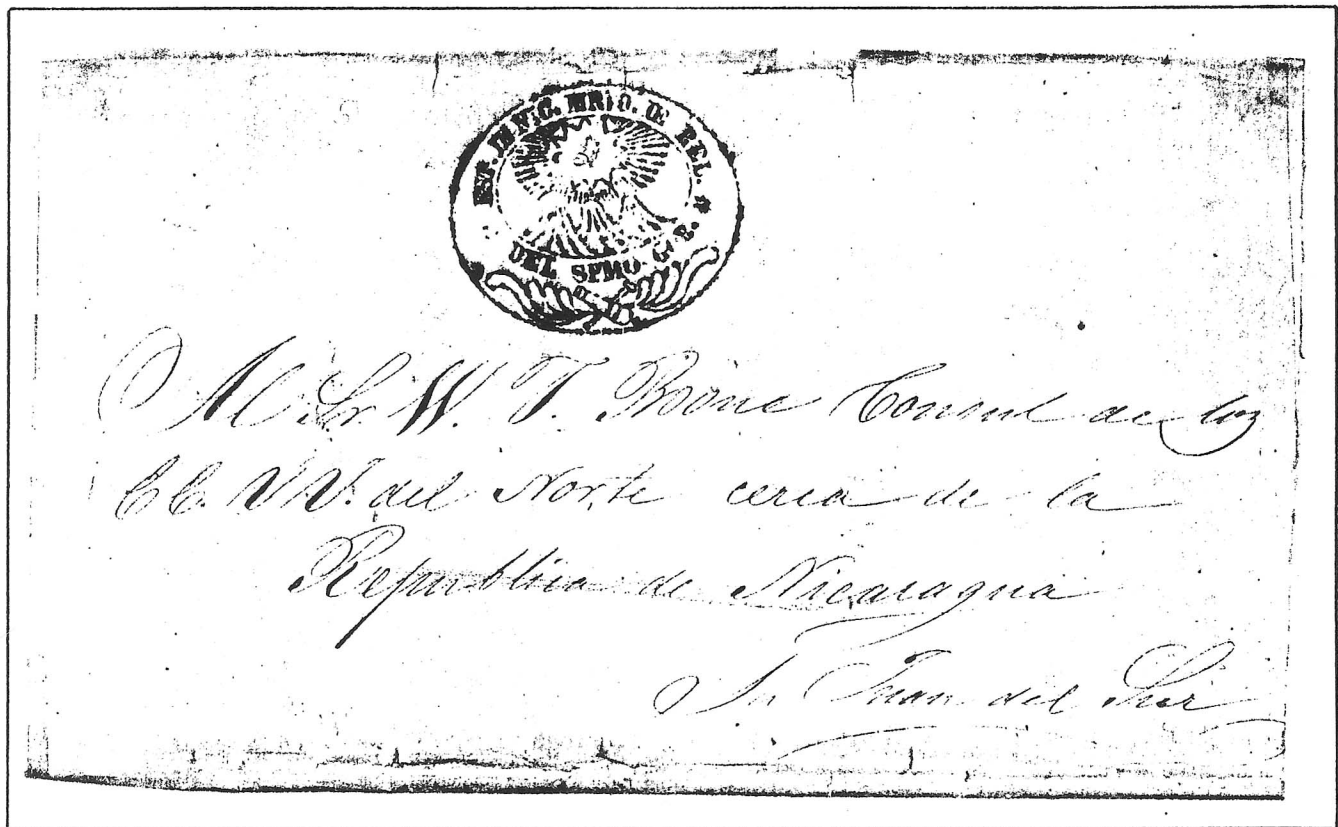 EST. DE NIC. MRIO. DE REL.
DEL SPMO. G. E.
Al Sr. W. T. Boone Consul de los
EE. UU. del Norte cerca de la
Republica de Nicaragua
Sn Juan del Sur